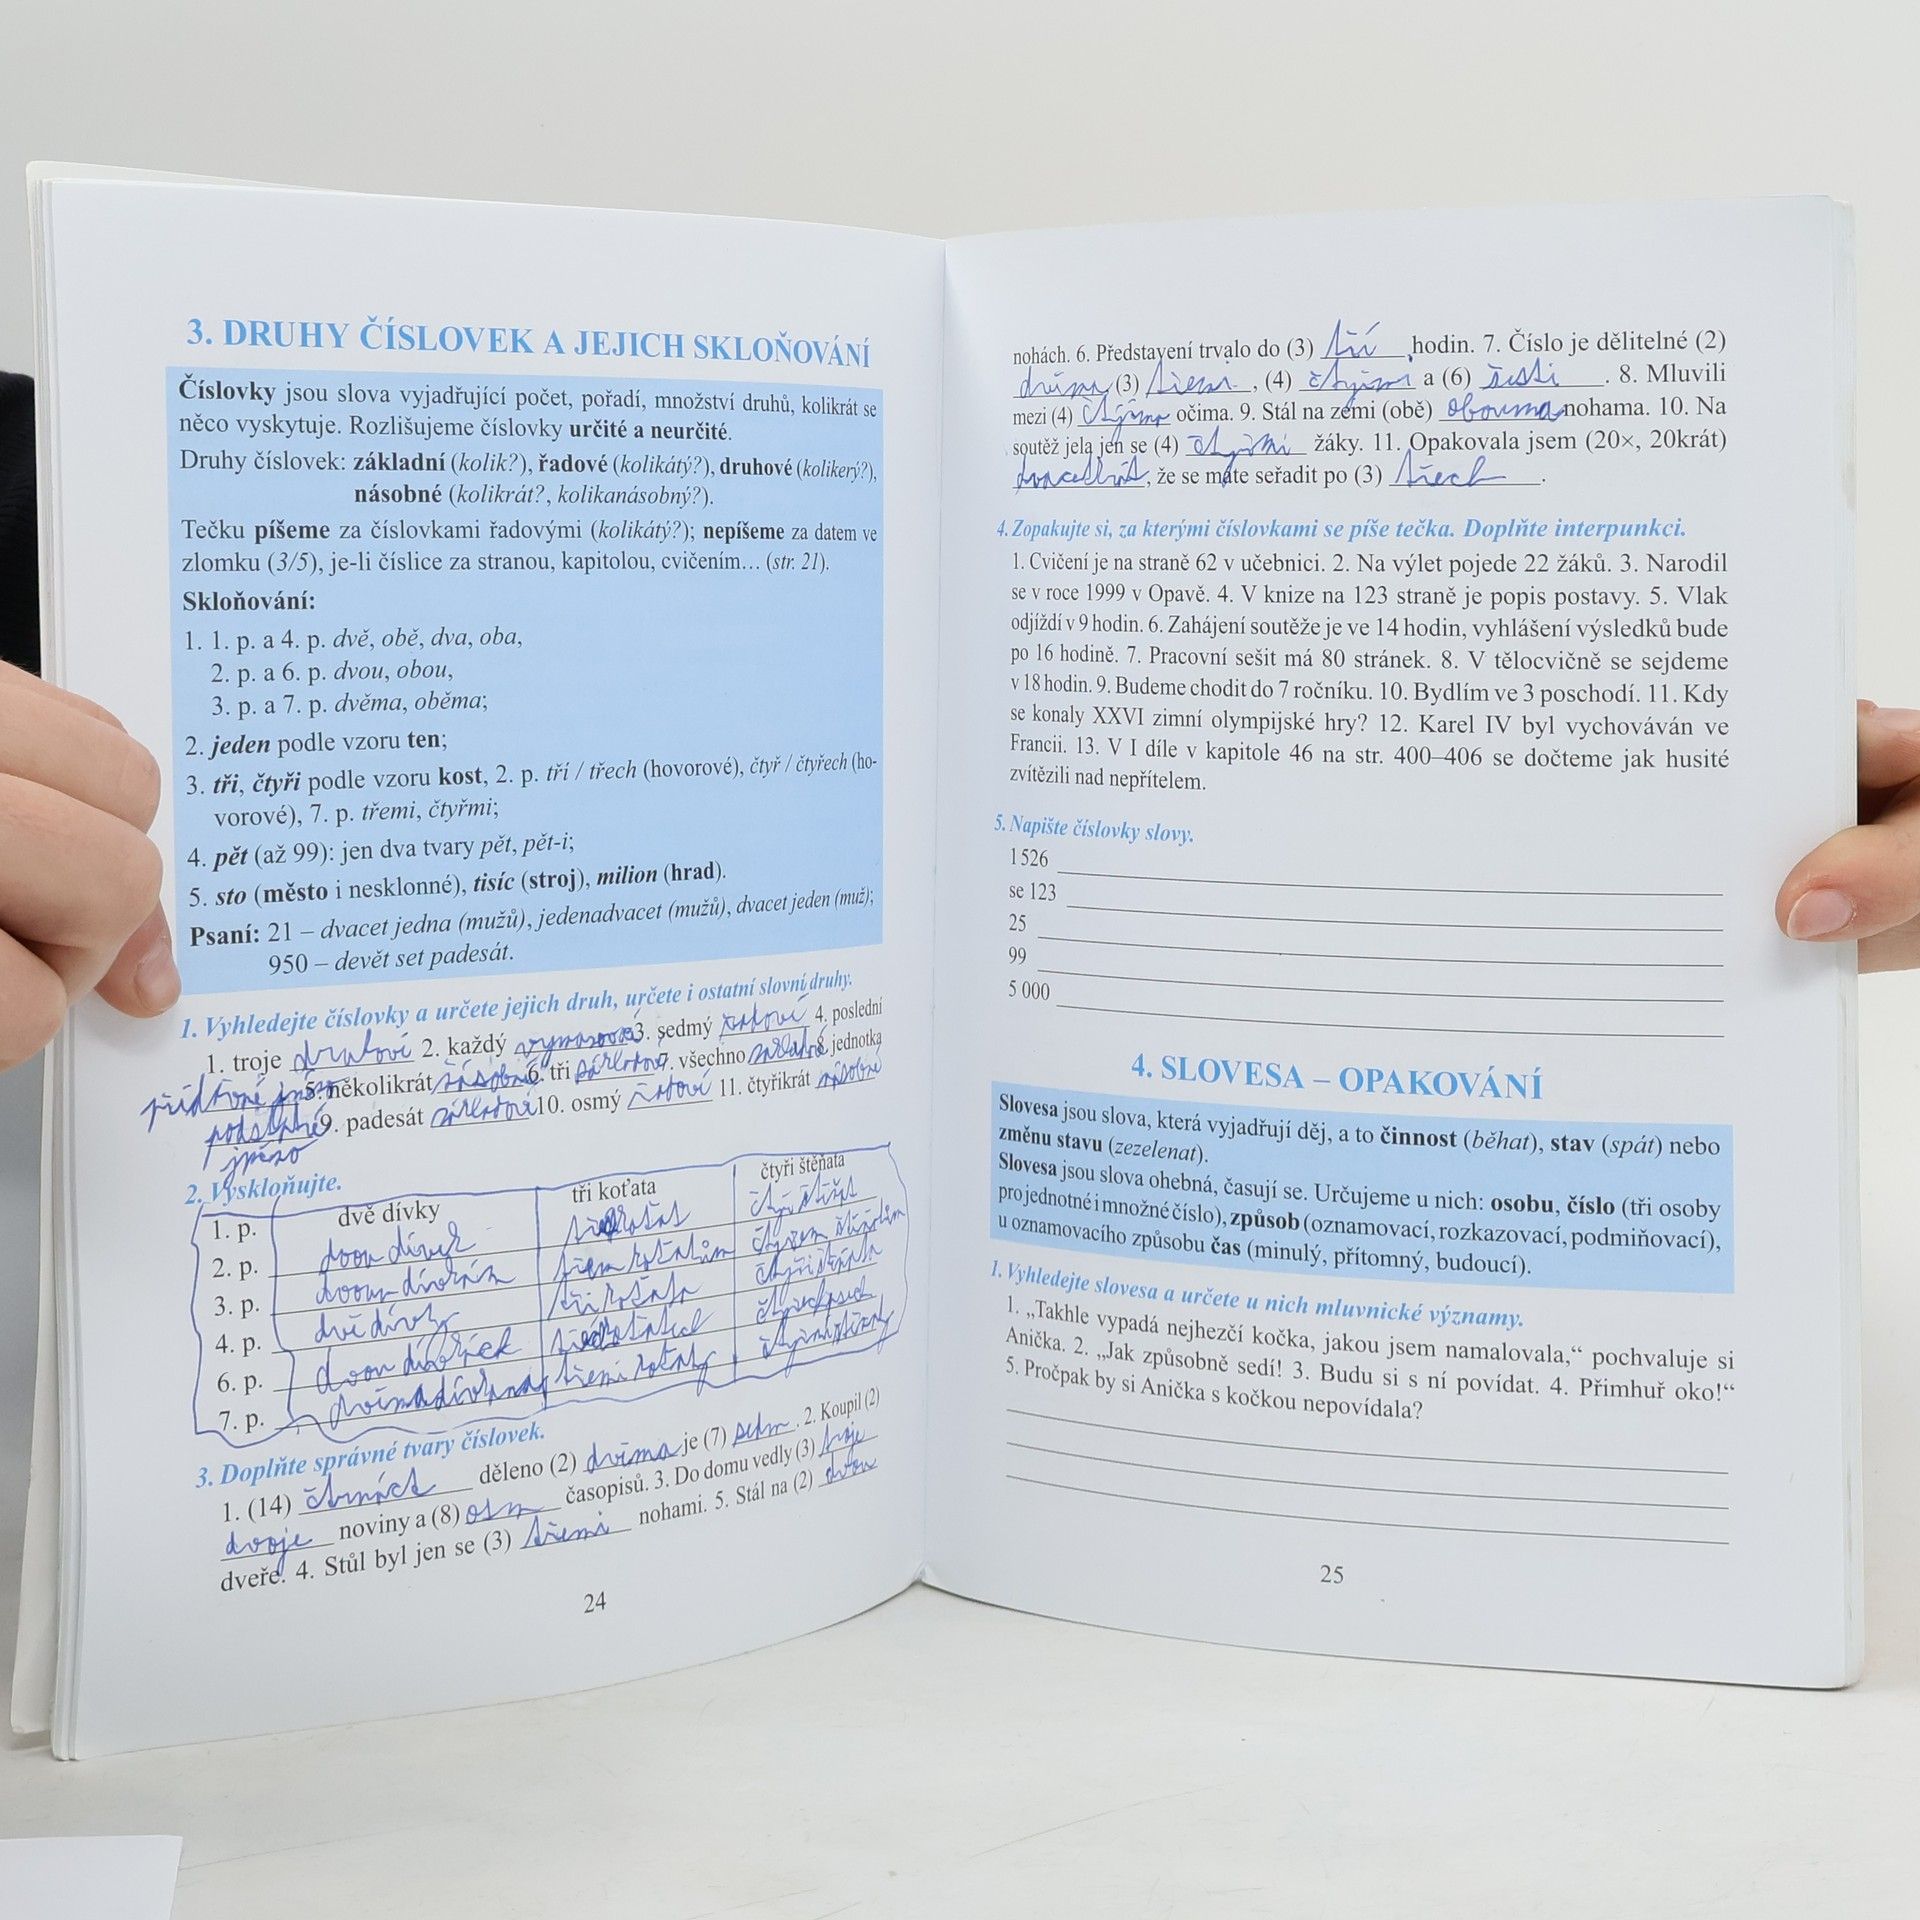 3. DRUHY ČÍSLOVEK A JEJICH SKLOŇOVÁNÍ
Číslovky jsou slova vyjadřující počet, pořadí, množství druhů, kolikrát se
něco vyskytuje. Rozlišujeme číslovky určité a neurčité.
Druhy číslovek: základní (kolik?), řadové (kolikátý?), druhové (kolikerý?),
násobné (kolikrát?, kolikanásobný?).
Tečku píšeme za číslovkami řadovými (kolikátý?); nepíšeme za datem ve
zlomku (3/5), je-li číslice za stranou, kapitolou, cvičením… (str. 21).
Skloňování:
1. 1. p. a 4. p. dvě, obě, dva, oba,
2. p. a 6. p. dvou, obou,
3. p. a 7. p. dvěma, oběma;
2. jeden podle vzoru ten;
3. tři, čtyři podle vzoru kost, 2. p. tří / třech (hovorové), čtyř / čtyřech (ho-
vorové), 7. p. třemi, čtyřmi;
4. pět (až 99): jen dva tvary pět, pět-i;
5. sto (město i nesklonné), tisíc (stroj), milion (hrad).
Psaní: 21 – dvacet jedna (mužů), jedenadvacet (mužů), dvacet jeden (muž);
950 – devět set padesát.
1. Vyhledejte číslovky a určete jejich druh, určete i ostatní slovní druhy.
1. troje druhové 2. každý 3. sedmý řadové 4. poslední
přídavné jméno 5. několikrát násobné 6. tři základové 7. všechno 8. jednotka
podstatné 9. padesát základové 10. osmý řadové 11. čtyřikrát násobné
jméno
2. Vyskloňujte.
1. p. dvě dívky tři koťata čtyři štěňata
2. p. dvou dívek
3. p.
4. p. dvě dívky tři koťata čtyři štěňata
6. p. dvou
7. p. třemi koťaty
3. Doplňte správné tvary číslovek.
1. (14) čtrnáct děleno (2) dvěma je (7) sedm. 2. Koupil (2)
dvoje noviny a (8) osm časopisů. 3. Do domu vedly (3) troje
dveře. 4. Stůl byl jen se (3) třemi nohami. 5. Stál na (2) dvou
24
nohách. 6. Představení trvalo do (3) tří hodin. 7. Číslo je dělitelné (2)
dvěma (3) třemi, (4) čtyřmi a (6) šesti. 8. Mluvili
mezi (4) čtyřma očima. 9. Stál na zemi (obě) obouma nohama. 10. Na
soutěž jela jen se (4) čtyřmi žáky. 11. Opakovala jsem (20×, 20krát)
dvacetkrát, že se máte seřadit po (3) třech.
4. Zopakujte si, za kterými číslovkami se píše tečka. Doplňte interpunkci.
1. Cvičení je na straně 62 v učebnici. 2. Na výlet pojede 22 žáků. 3. Narodil
se v roce 1999 v Opavě. 4. V knize na 123 straně je popis postavy. 5. Vlak
odjíždí v 9 hodin. 6. Zahájení soutěže je ve 14 hodin, vyhlášení výsledků bude
po 16 hodině. 7. Pracovní sešit má 80 stránek. 8. V tělocvičně se sejdeme
v 18 hodin. 9. Budeme chodit do 7 ročníku. 10. Bydlím ve 3 poschodí. 11. Kdy
se konaly XXVI zimní olympijské hry? 12. Karel IV byl vychováván ve
Francii. 13. V I díle v kapitole 46 na str. 400–406 se dočteme jak husité
zvítězili nad nepřítelem.
5. Napište číslovky slovy.
1 526
se 123
25
99
5 000
4. SLOVESA – OPAKOVÁNÍ
Slovesa jsou slova, která vyjadřují děj, a to činnost (běhat), stav (spát) nebo
změnu stavu (zezelenat).
Slovesa jsou slova ohebná, časují se. Určujeme u nich: osobu, číslo (tři osoby
pro jednotné i množné číslo), způsob (oznamovací, rozkazovací, podmiňovací),
u oznamovacího způsobu čas (minulý, přítomný, budoucí).
1. Vyhledejte slovesa a určete u nich mluvnické významy.
1. „Takhle vypadá nejhezčí kočka, jakou jsem namalovala,“ pochvaluje si
Anička. 2. „Jak způsobně sedí! 3. Budu si s ní povídat. 4. Přimhuř oko!“
5. Pročpak by si Anička s kočkou nepovídala?
25